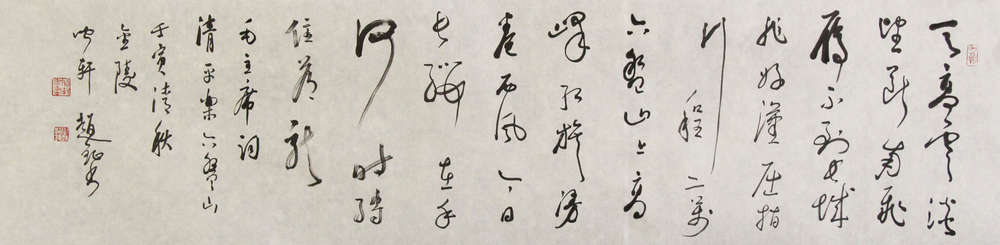 天高雲淡
望斷南飛
雁不到長城
非好漢屈指
行程二萬
六盤山上高
峰紅旗漫
卷西風今日
長纓在手
何時縛
住蒼龍
毛主席詞
清平樂六盤山
壬寅清秋
金陵
軒 趙